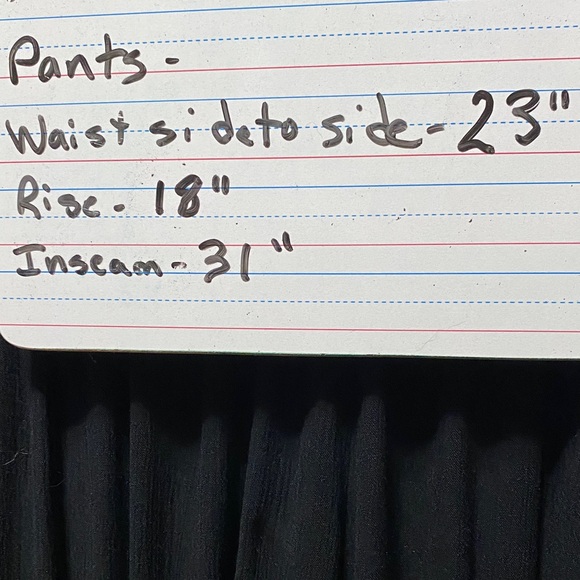 Pants -
Waist side to side - 23"
Rise - 18"
Inseam - 31"